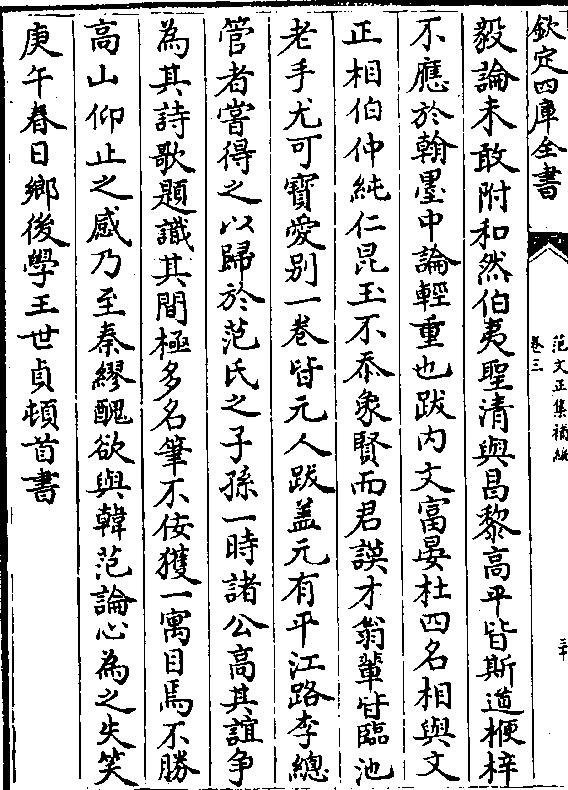 欽定四庫全書
范文正集補編
卷三
毅論未敢附和然伯夷聖清與昌黎高平皆斯道楩梓
不應於翰墨中論輕重也跋内文富晏杜四名相與文
正相伯仲純仁昆玉不忝象賢而君謨才翁輩皆臨池
老手尤可寳愛别一卷皆元人跋盖元有平江路李總
管者嘗得之以歸於范氏之子孫一時諸公高其誼争
為其詩歌題識其間極多名筆不佞獲一寓目焉不勝
高山仰止之感乃至秦繆醜欲與韓范論心為之失笑
庚午春日鄉後學王世貞頓首書